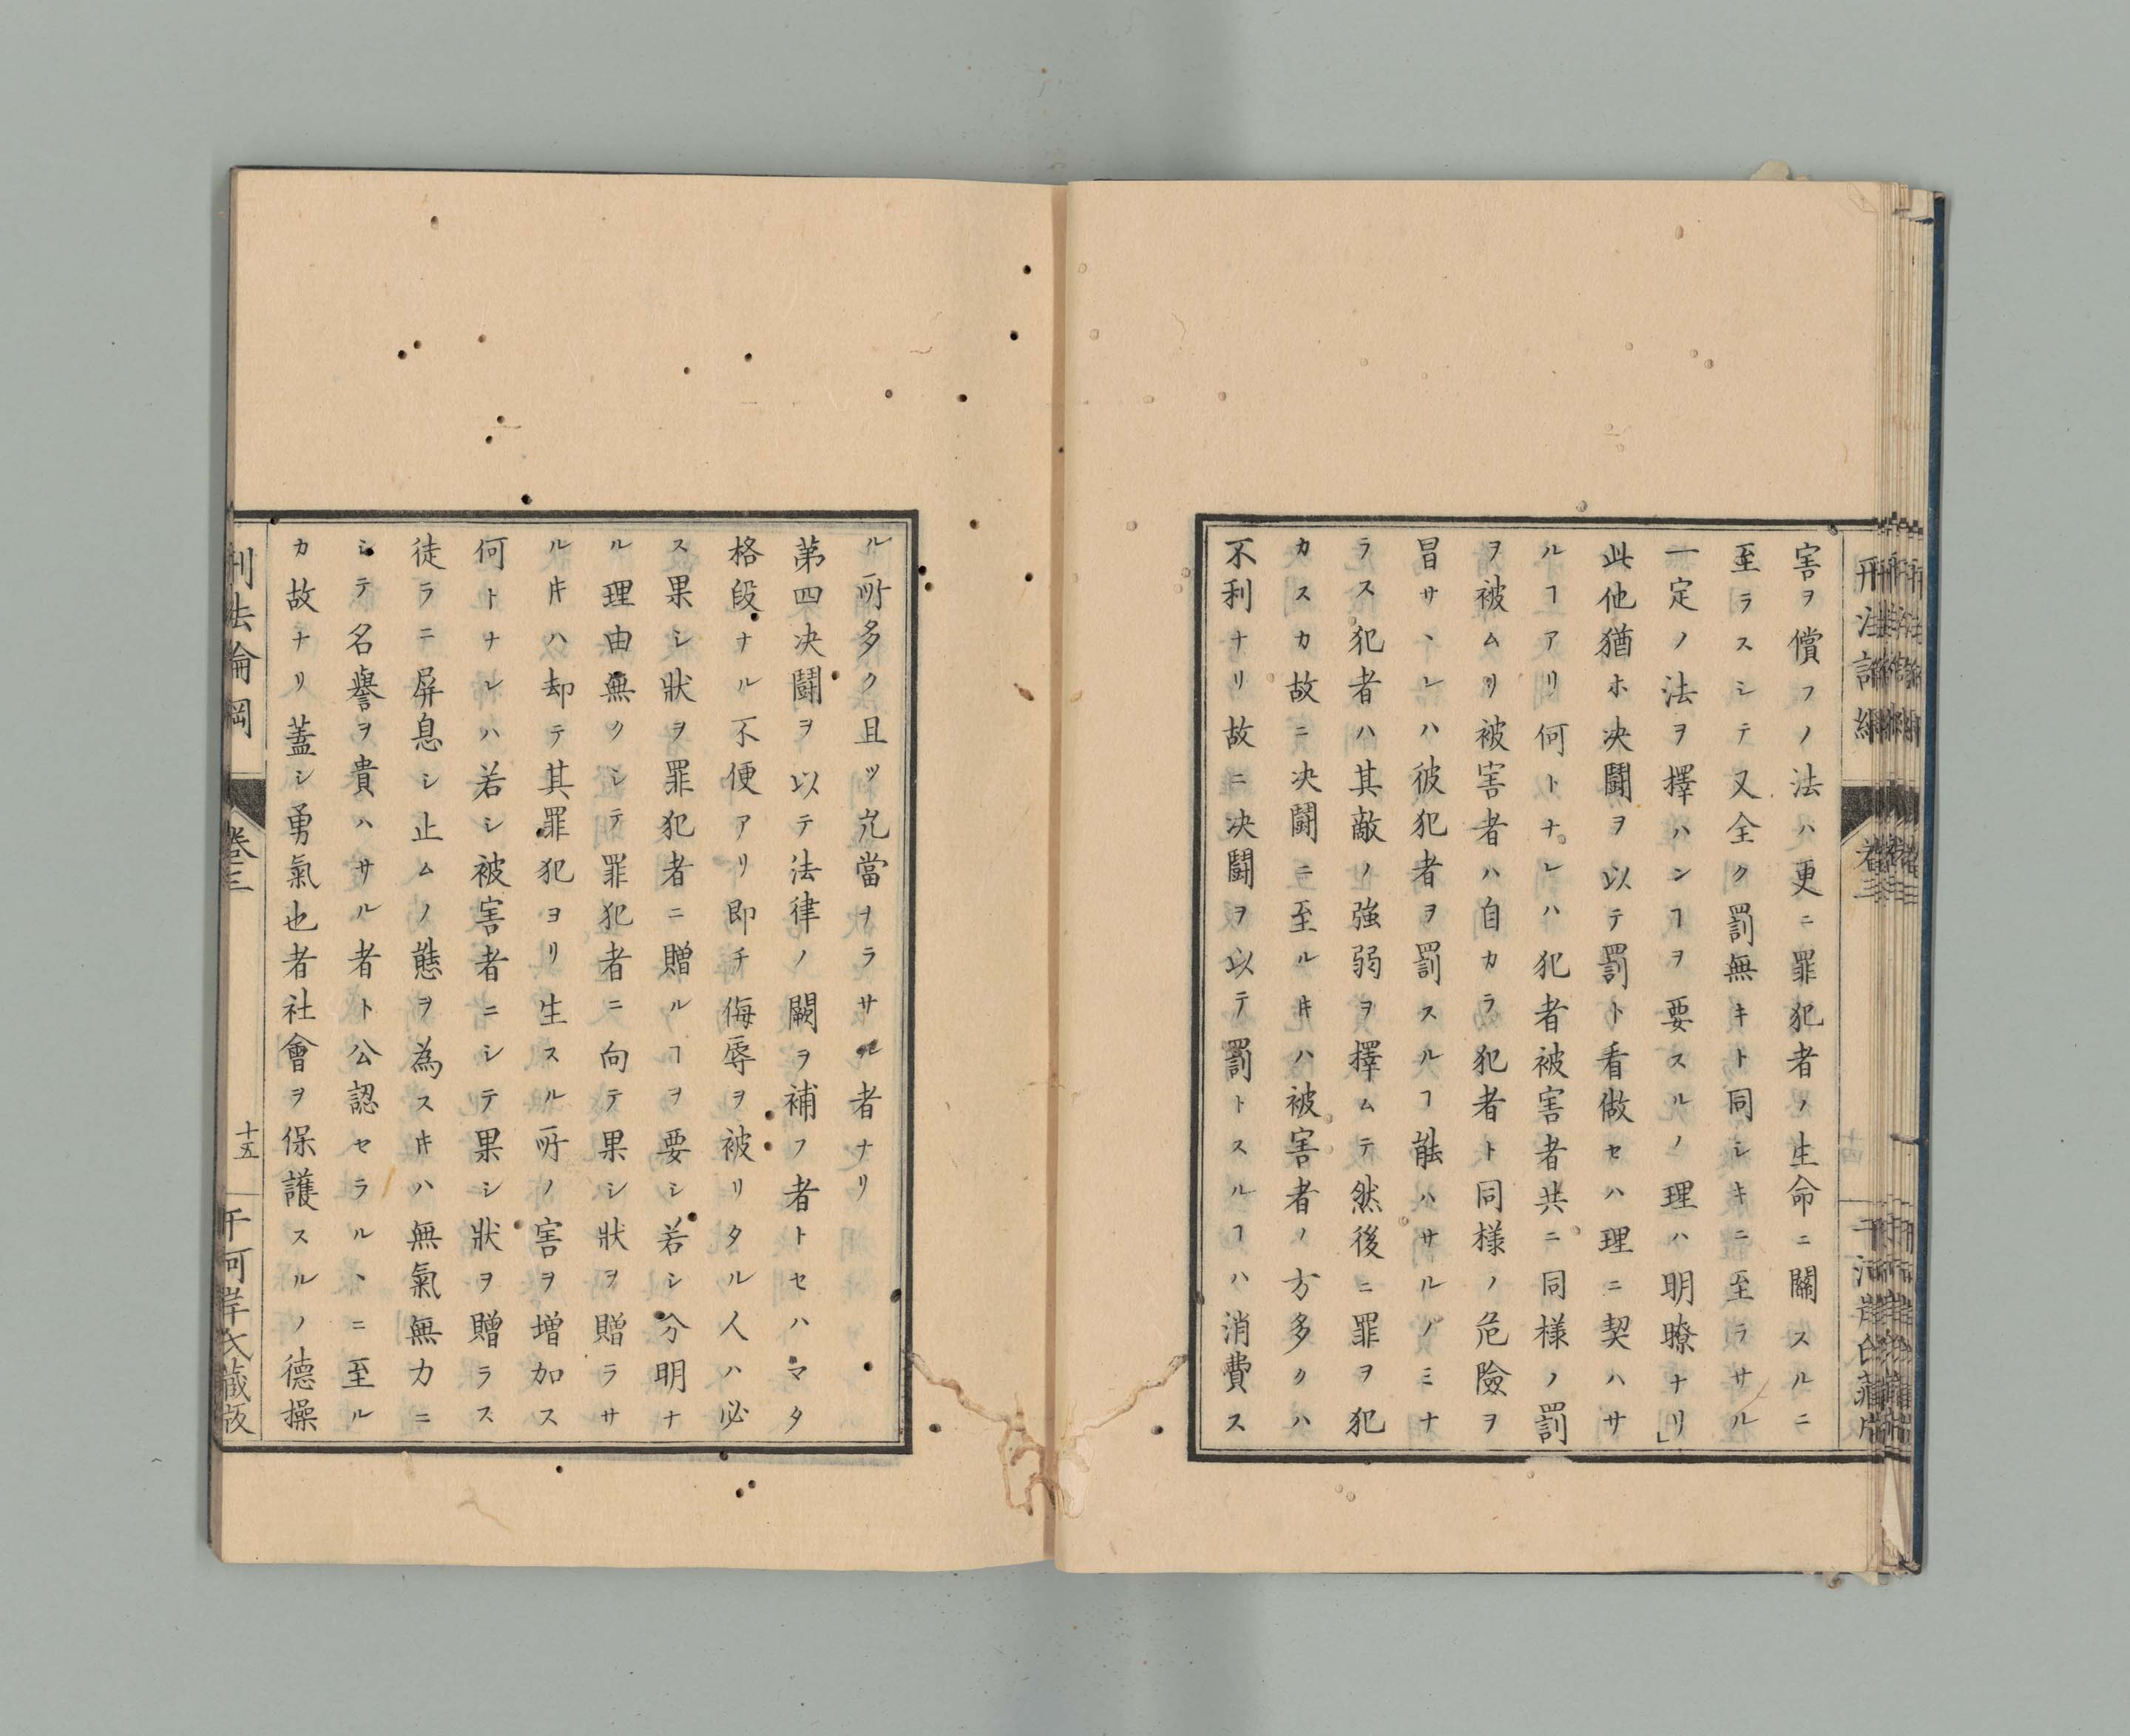 害ヲ償フノ法ハ更ニ罪犯者ノ生命ニ關スルニ
至ラスシテ又全ク罰無キト同シキニ至ラサル
一定ノ法ヲ擇ハンヿヲ要スルノ理ハ明瞭ナリ」
此他猶ホ决闘ヲ以テ罰ト看做セハ理ニ契ハサ
ルヿアリ何トナレハ犯者被害者共ニ同様ノ罰
ヲ被ムリ被害者ハ自カラ犯者ト同様ノ危險ヲ
冒サヽレハ彼犯者ヲ罰スルヿ能ハサルノミナ
ラス犯者ハ其敵ノ強弱ヲ擇ムテ然後ニ罪ヲ犯
カスカ故ニ决闘ニ至ルキハ被害者ノ方多クハ
不利ナリ故ニ决闘ヲ以テ罰トスルヿハ消費ス
ル所多ク且ツ允當ナラサル者ナリ
第四决闘ヲ以テ法律ノ闕ヲ補フ者トセハマタ
格段ナル不便アリ即チ侮辱ヲ被リタル人ハ必
ス果シ狀ヲ罪犯者ニ贈ルヿヲ要シ若シ分明ナ
ル理由無クシテ罪犯者ニ向テ果シ狀ヲ贈ラサ
ルキハ却テ其罪犯ヨリ生スル所ノ害ヲ增加ス
何トナレハ若シ被害者ニシテ果シ狀ヲ贈ラス
徒ラニ屏息シ止ムノ態ヲ為スキハ無氣無力ニ
シテ名譽ヲ貴ハサル者ト公認セラルヽニ至ル
カ故ナリ蓋シ勇氣也者社會ヲ保護スルノ德操
刑法論綱
卷三
十五
千河岸氏藏版